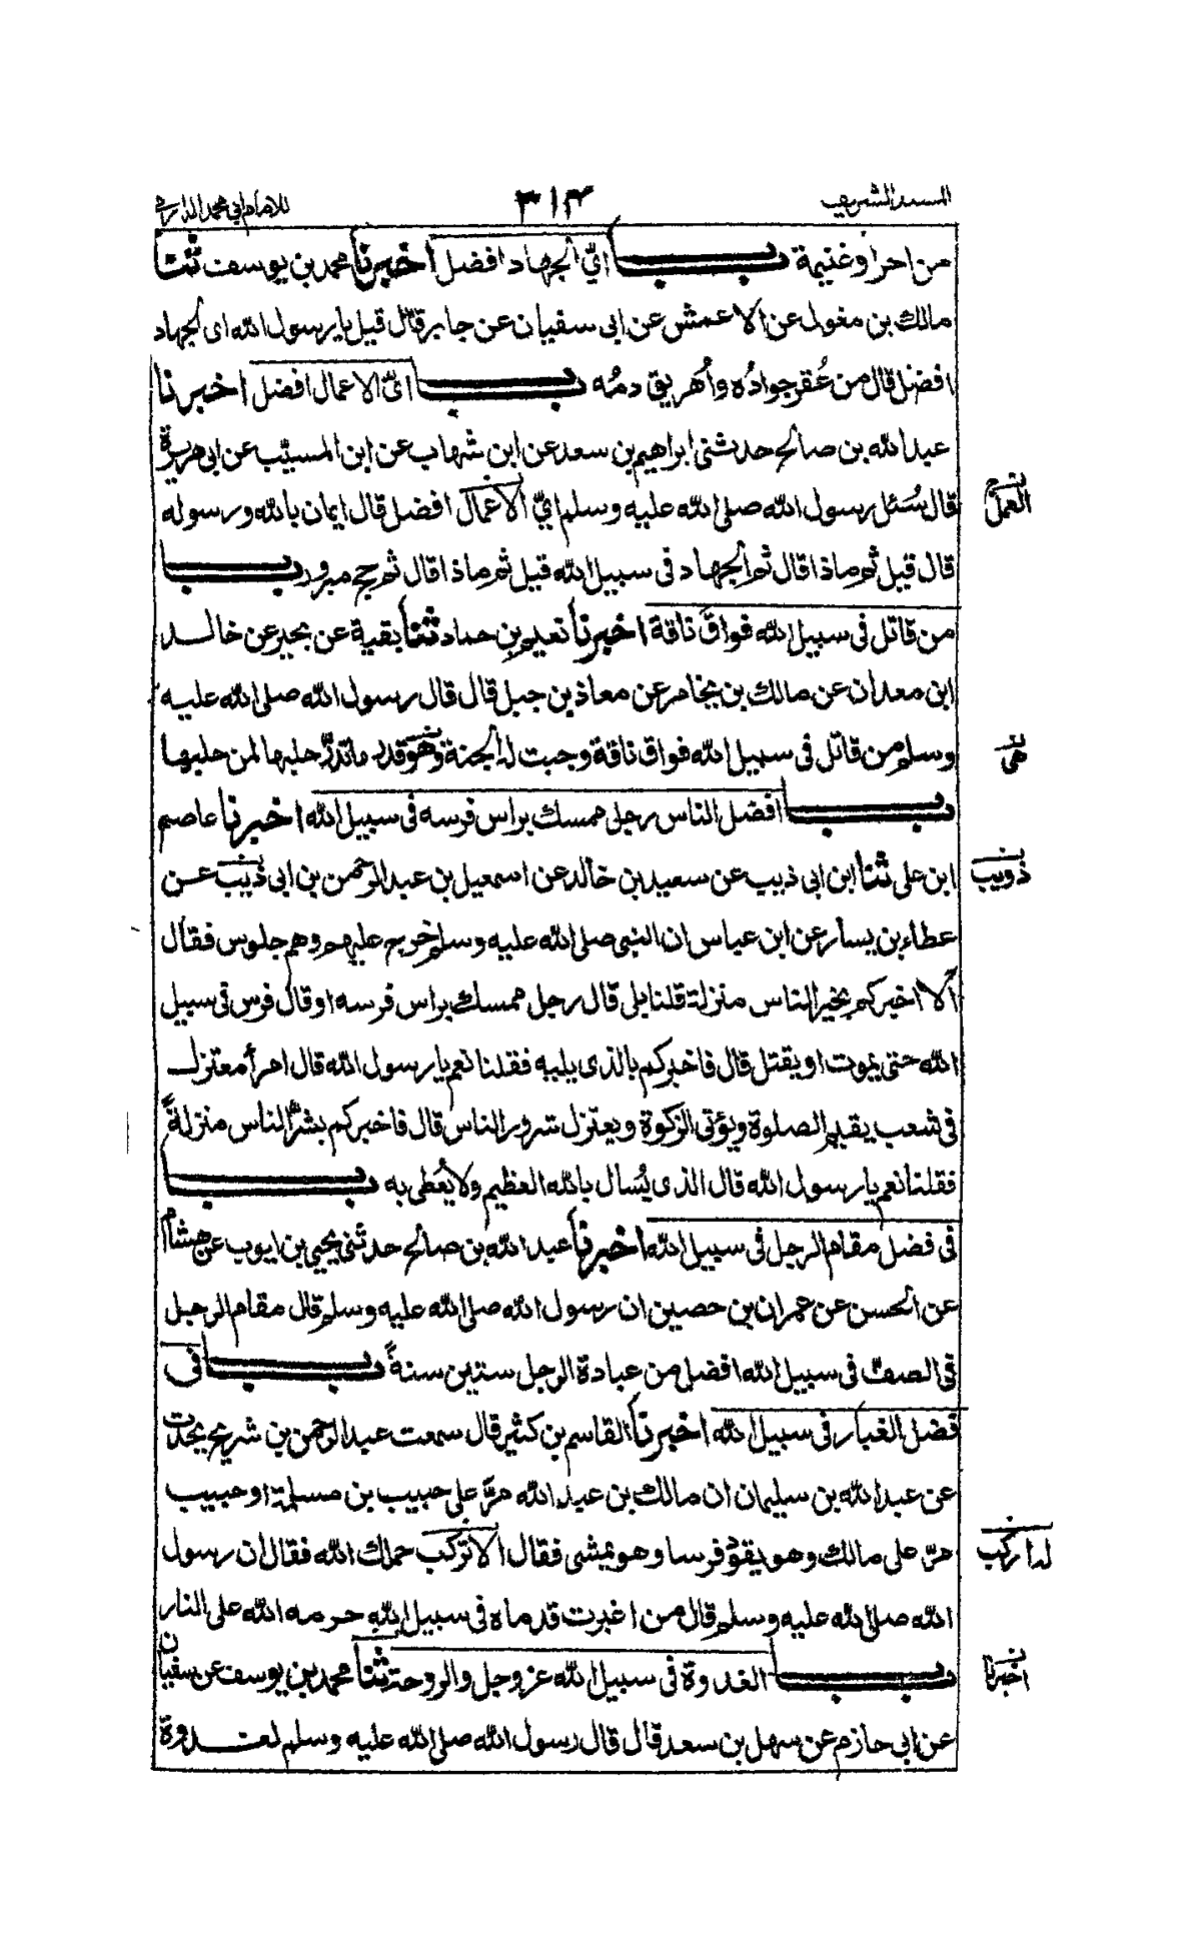 المسند الشريف ٣١٣ للامام ابي محمد الدارمي
من اجر او غنيمة باب ايّ الجهاد افضل اخبرنا محمد بن يوسف ثنا
مالك بن مغول عن الاعمش عن ابى سفيان عن جابر قال قيل يا رسول الله اى الجهاد
افضل قال من عُقر جوادُه وأُهريق دمُه باب ايّ الاعمال افضل اخبرنا
عبد الله بن صالح حدثنى ابراهيم بن سعد عن ابن شهاب عن ابن المسيّب عن ابى هريرة
قال سُئل رسول الله صلى الله عليه وسلم ايّ الاعمال افضل قال ايمان بالله ورسوله
العمل
قال قيل ثم ماذا قال ثم الجهاد فى سبيل الله قيل ثم ماذا قال ثم حج مبرور باب
من قاتل فى سبيل الله فواقَ ناقة اخبرنا نعيم بن حماد ثنا بقية عن بحير عن خالد
ابن معدان عن مالك بن يخامر عن معاذ بن جبل قال قال رسول الله صلى الله عليه
وسلم من قاتل فى سبيل الله فواق ناقة وجبت له الجنة وهو قدر ما تدرّ حلبها لمن حلبها
هى
باب افضل الناس رجل ممسك براس فرسه فى سبيل الله اخبرنا عاصم
ابن على ثنا ابن ابى ذيب عن سعيد بن خالد عن اسمعيل بن عبد الرحمن بن ابى ذيب عن
ذويب
عطاء بن يسار عن ابن عباس ان النبى صلى الله عليه وسلم خرج عليهم وهم جلوس فقال
ألا اخبركم بخير الناس منزلة قلنا بلى قال رجل ممسك براس فرسه او قال فرس فى سبيل
الله حتى يموت او يقتل قال فاخبركم بالذى يليه فقلنا نعم يا رسول الله قال امرأ معتزل
فى شعب يقيم الصلوة ويؤتى الزكوة ويعتزل شرور الناس قال فاخبركم بشرّ الناس منزلةً
فقلنا نعم يا رسول الله قال الذى يُسال بالله العظيم ولا يُعطى به باب
فى فضل مقام الرجل فى سبيل الله اخبرنا عبد الله بن صالح حدثنى يحيى بن ايوب عن هشام
عن الحسن عن عمران بن حصين ان رسول الله صلى الله عليه وسلم قال مقام الرجل
فى الصفّ فى سبيل الله افضل من عبادة الرجل ستين سنةً باب فى
فضل الغبار فى سبيل الله اخبرنا القاسم بن كثير قال سمعت عبد الرحمن بن شريح يحدّث
عن عبد الله بن سليمان ان مالك بن عبد الله مرّ على حبيب بن مسلمة او حبيب
مرّ على مالك وهو يقود فرسا وهو يمشى فقال الا تركب حملك الله فقال ان رسول
له اركب
الله صلى الله عليه وسلم قال من اغبرت قدماه فى سبيل الله حرمه الله على النار
باب الغدوة فى سبيل الله عز وجل والروحة ثنا محمد بن يوسف عن سفيان
اخبرنا
عن ابى حازم عن سهل بن سعد قال قال رسول الله صلى الله عليه وسلم لغدوة